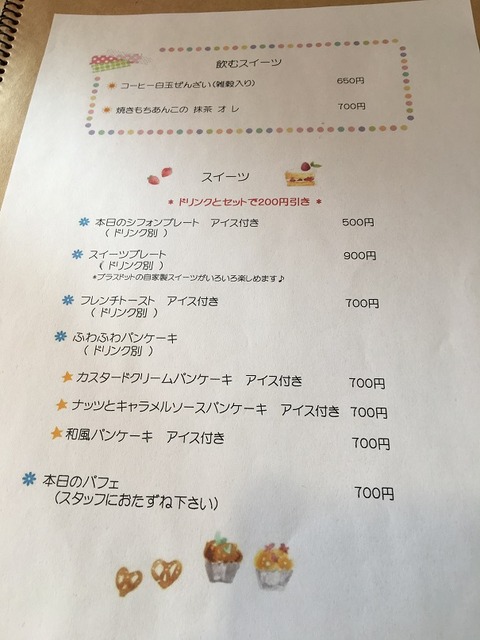 飲むスイーツ
コーヒー白玉ぜんざい(雑穀入り) 650円
焼きもちあんこの 抹茶 オ レ 700円
スイーツ
* ドリンクとセットで200円引き *
本日のシフォンプレート アイス付き 500円
( ドリンク別 )
スイーツプレート 900円
( ドリンク別 )
*プラスドットの自家製スイーツがいろいろ楽しめます♪
フレンチトースト アイス付き 700円
( ドリンク別 )
ふわふわパンケーキ
( ドリンク別 )
カスタードクリームパンケーキ アイス付き 700円
ナッツとキャラメルソースパンケーキ アイス付き 700円
和風パンケーキ アイス付き 700円
本日のパフェ 700円
(スタッフにおたずね下さい)